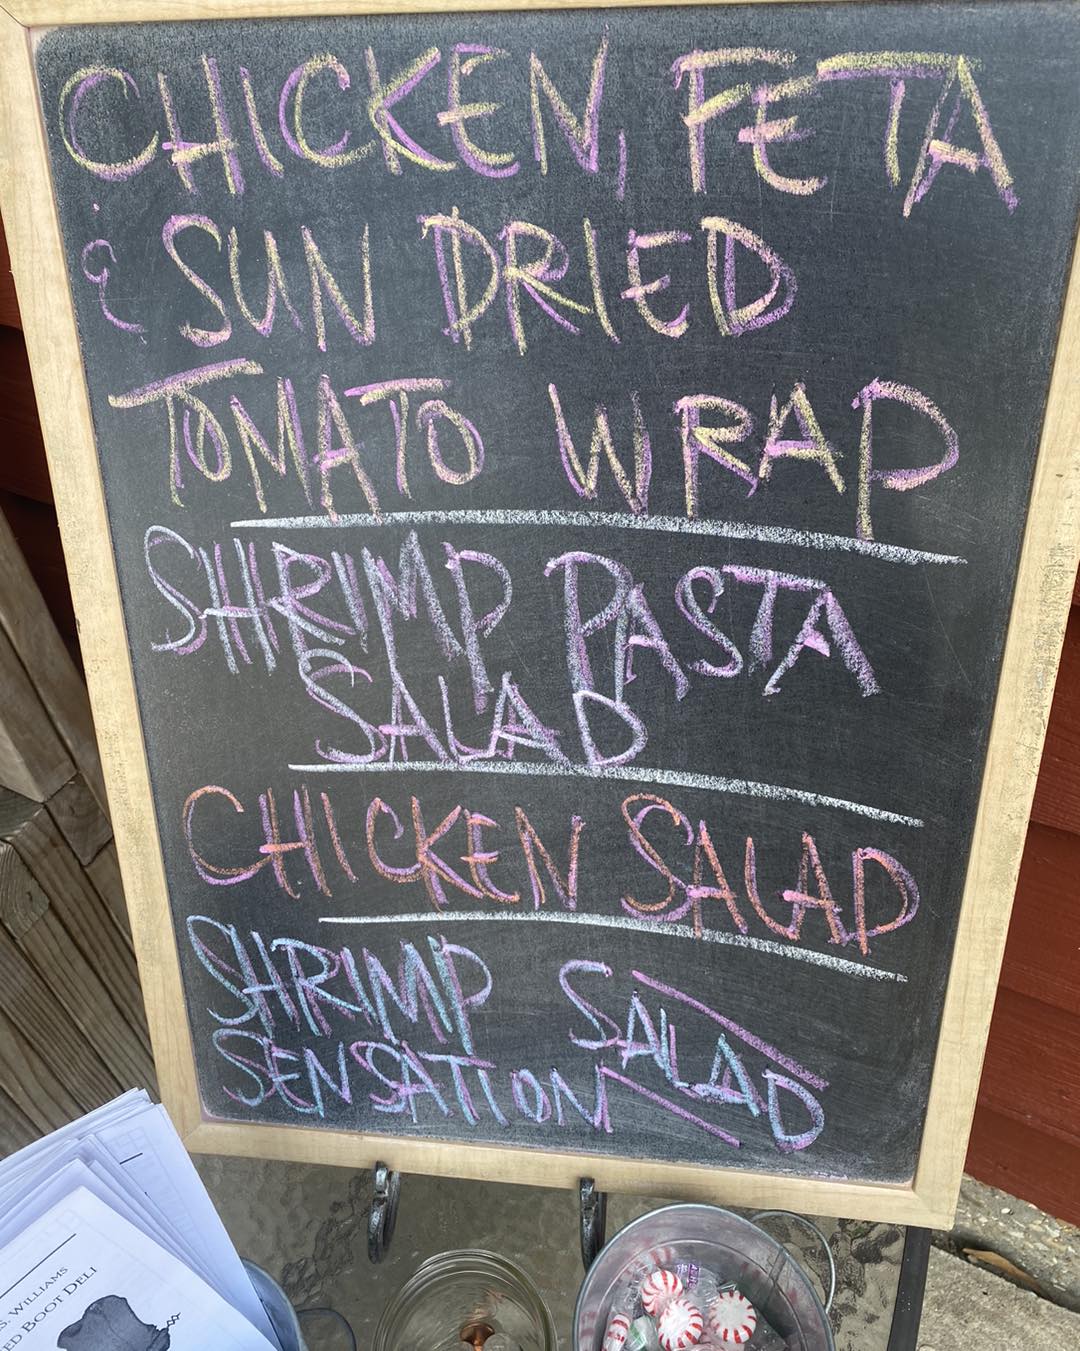 CHICKEN, FETA
& SUN DRIED
TOMATO WRAP
SHRIMP PASTA
SALAD
CHICKEN SALAD
SHRIMP
SENSATION SALAD
S. WILLIAMS
ED BOOT DELI